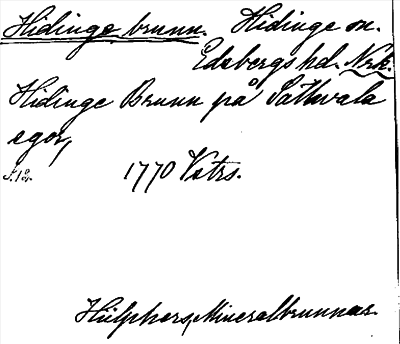 Hidinge brunn. Hidinge sn.
Edsbergs hd. Nrk.
Hidinge Brunn på Såthvala
egor,
1770 Vstrs.
Hülphers, Mineralbrunnar.